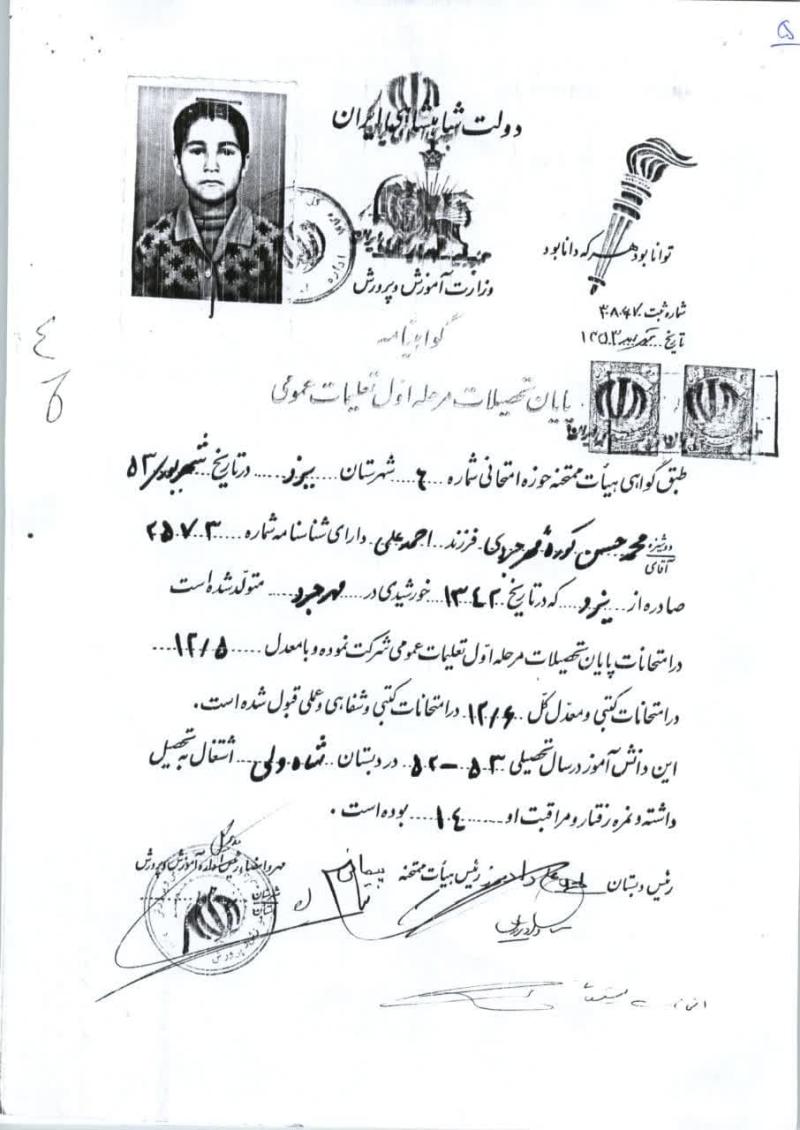 ۵
دولت شاهنشاهی ایران
وزارت آموزش و پرورش
توانا بود هر که دانا بود
شماره ثبت ۳۰۸۰۶۷
تاریخ ۱۳۵۳
گواهینامه
پایان تحصیلات مرحله اول تعلیمات عمومی
۴
طبق گواهی هیأت ممتحنه حوزه امتحانی شماره ۶ شهرستان یزد در تاریخ شهریور ۵۳
دوشیزه
آقای
محمد حسن فرزند احمد علی دارای شناسنامه شماره ۲۵۷۰۳
صادره از یزد که در تاریخ ۱۳۴۲ خورشیدی در مهرجرد متولد شده است
در امتحانات پایان تحصیلات مرحله اول تعلیمات عمومی شرکت نموده و با معدل ۱۲/۵
در امتحانات کتبی و معدل کل ۱۲/۶ در امتحانات کتبی و شفاهی و عملی قبول شده است.
این دانش آموز در سال تحصیلی ۵۳-۵۲ در دبستان شاه ولی اشتغال به تحصیل
داشته و نمره رفتار و مراقبت او ۱۴ بوده است.
رئیس دبستان رئیس هیأت ممتحنه پیمانی
مهر و امضاء رئیس اداره آموزش و پرورش